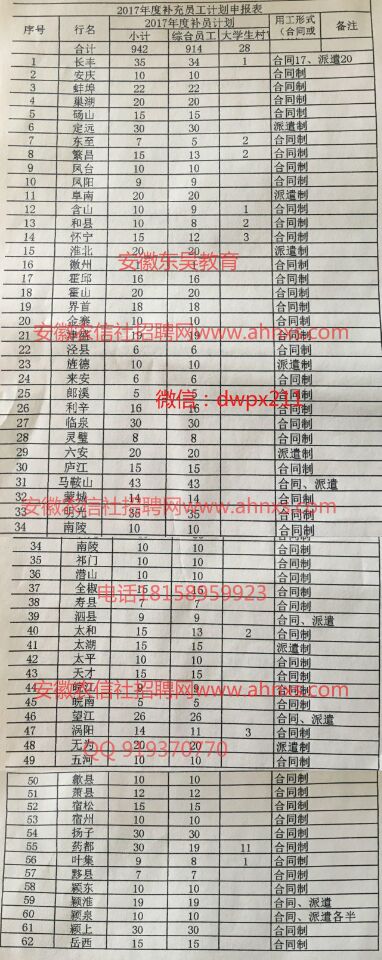 2017年度补充员工计划申报表
序号 行名 2017年度补员工计划 用工形式（合同或 备注
小计 综合员工 大学生村
合计 942 914 28
1 长丰 35 34 1 合同17、派遣20
2 安庆 10 10 合同制
3 蚌埠 22 22 合同制
4 巢湖 20 20 合同制
5 砀山 15 15 合同制
6 定远 30 30 派遣制
7 东至 7 5 2 合同制
8 繁昌 15 13 2 合同制
9 凤台 10 10 合同制
10 凤阳 9 9 合同制
11 阜南 20 20 派遣制
12 含山 10 9 1 合同制
13 和县 10 8 2 合同制
14 怀宁 15 12 3 合同制
15 淮北 20 20 派遣制
安徽东吴教育
16 徽州 合同制
17 霍邱 16 16 合同制
18 霍山 20 20 合同制
19 界首 18 18 合同制
20 金寨 10 10 合同制
安徽农信社招聘网www.ahnxs.com
21 19 19 合同制
22 泾县 6 6 合同制
23 旌德 10 10 派遣制
24 来安 6 6 合同制
25 郎溪 5 合同制
微信：dwpx211
26 利辛 16 16 合同制
27 临泉 30 30 合同制
28 灵璧 8 8 合同制
29 六安 20 20 派遣制
30 庐江 15 15 合同制
31 马鞍山 43 43 合同、派遣
32 蒙城 14 14 合同制
安徽农信社招聘网www.ahnxs.com
33 明光 35 35 合同制
34 南陵 10 10 合同制
34 南陵 10 10 合同制
35 祁门 10 10 合同制
36 潜山 10 10 合同制
37 全椒 15 15 合同制
电话18158959923
38 寿县 7 合同制
39 泗县 9 9 合同、派遣
40 太和 15 13 2 合同制
41 太湖 15 15 派遣制
42 太平 10 10 合同制
43 天才 15 15 合同制
44 皖江 合同制
安徽农信社招聘网www.ahnxs.com
45 皖南 15 15 合同制
46 望江 26 26 合同、派遣
47 涡阳 14 11 3 合同制
48 无为 20 20 派遣制
QQ 979370770
49 五河 10 10 合同制
50 歙县 10 10 合同制
51 萧县 12 12 合同制
52 宿松 15 15 合同制
53 宿州 10 10 合同制
54 扬子 30 30 合同制
55 药都 30 19 11 合同制
56 叶集 9 8 1 合同制
57 黟县 7 7 合同制
58 颍东 10 10 合同制
59 颍淮 19 19 合同、派遣
60 颍泉 10 10 合同、派遣各半
61 颍上 30 30 合同制
62 岳西 15 15 合同制